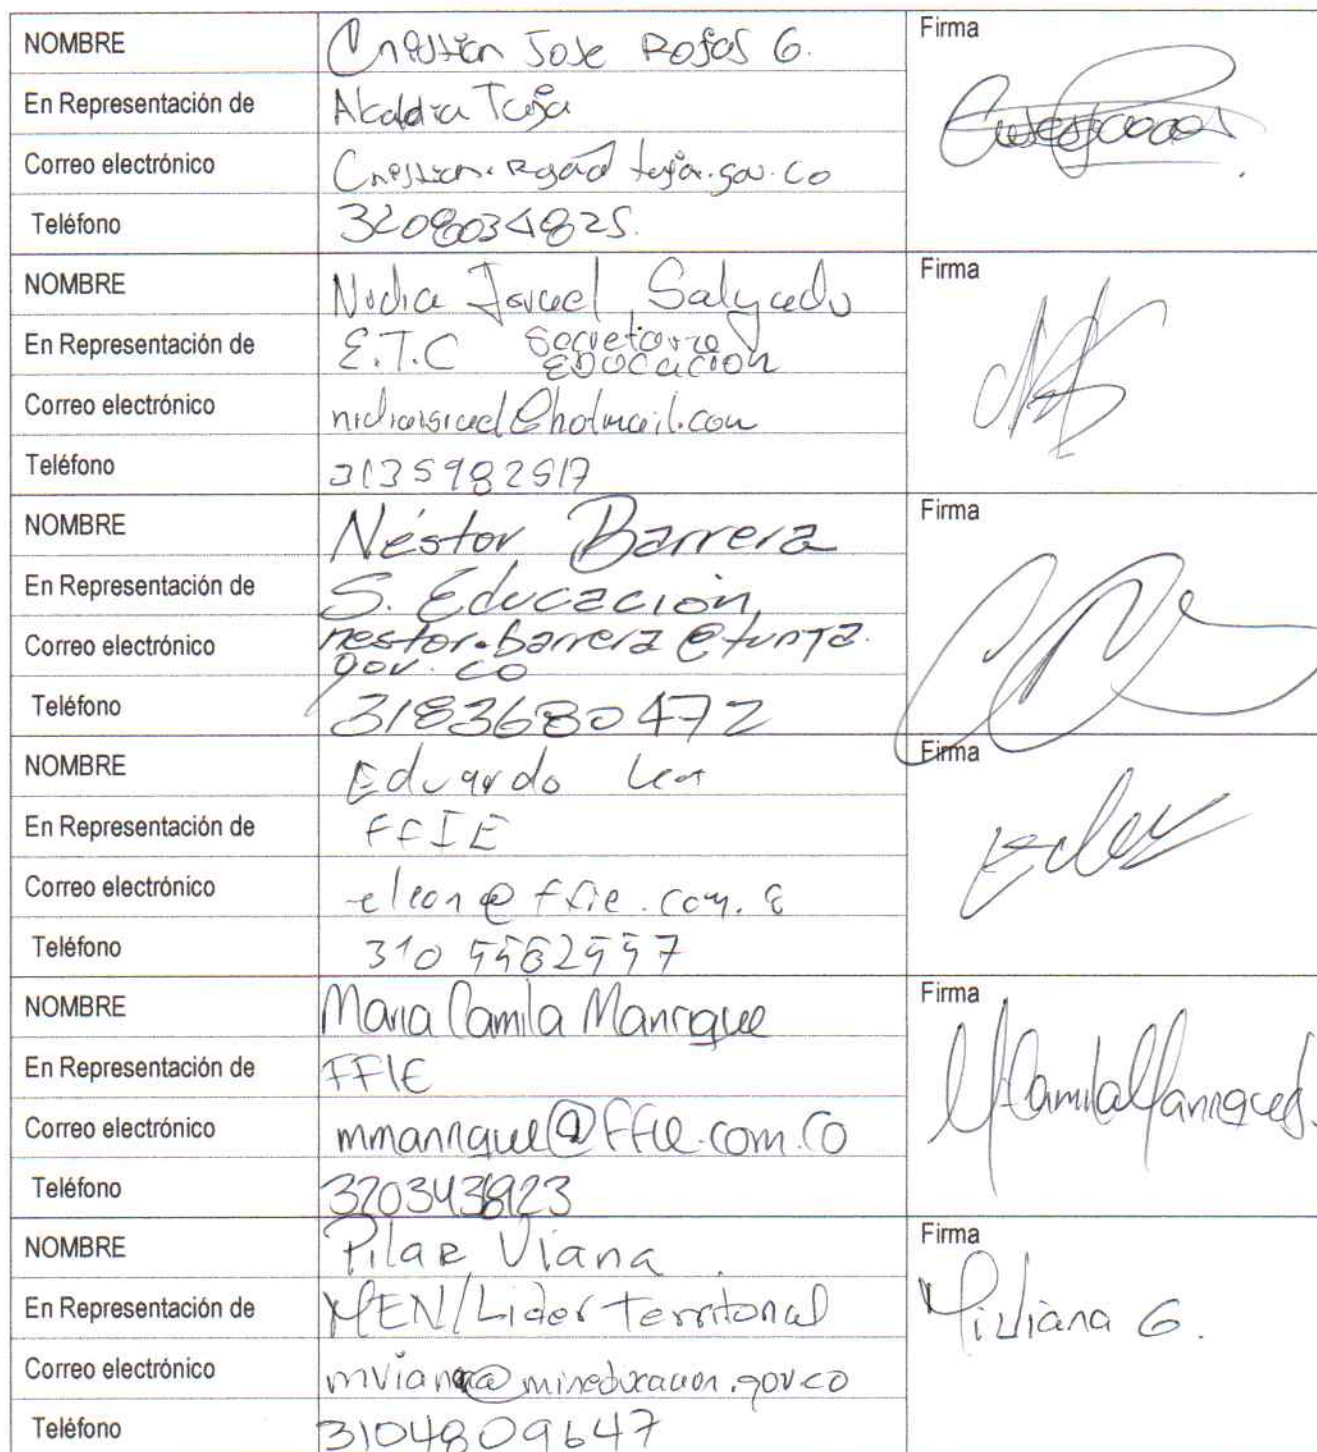 NOMBRE Cristian Jose Rojas G. Firma
En Representación de Alcaldia Tunja
Correo electrónico
Teléfono 3208034825.
NOMBRE Nidia Israel Salgado Firma
En Representación de E.T.C Secretaria
EDUCACION
Correo electrónico nidiaisrael@hotmail.com
Teléfono 3135982517
NOMBRE Néstor Barrera Firma
En Representación de S. Educación
Correo electrónico nestor.barrera@tunja.
gov.co
Teléfono 3183680472
NOMBRE Eduardo Leon Firma
En Representación de FFIE
Correo electrónico eleon@ffie.com.
Teléfono 310
NOMBRE Maria Camila Manrique Firma
En Representación de FFIE
Correo electrónico mmanrique@ffie.com.co
Teléfono 3203438923
NOMBRE Pilar Viana Firma
En Representación de MEN/Lider Territorial
Correo electrónico mviana@mineducacion.gov.co
Teléfono 3104809647